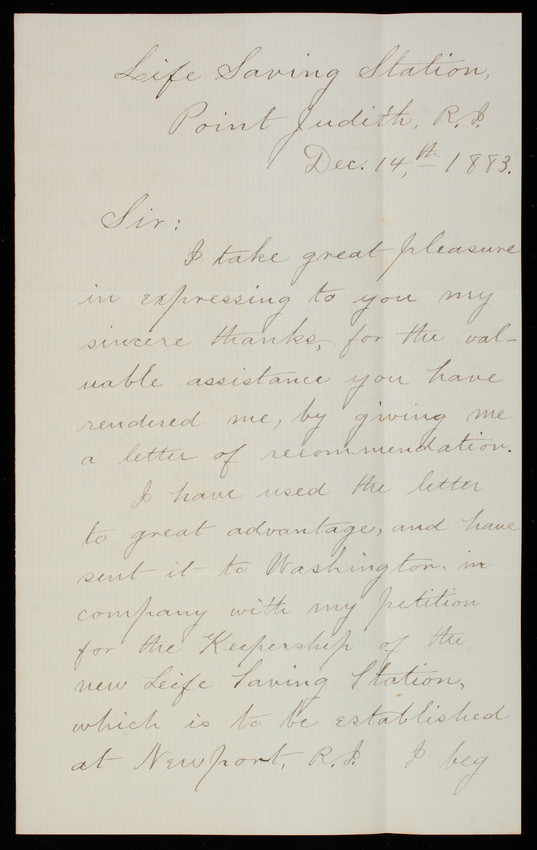 Life Saving Station,
Point Judith, R.I.
Dec. 14,th 1883.
Sir:
I take great pleasure
in expressing to you my
sincere thanks, for the val-
uable assistance you have
rendered me, by giving me
a letter of recommendation.
I have used the letter
to great advantage, and have
sent it to Washington, in
company with my petition
for the Keepership of the
new Life Saving Station,
which is to be established
at Newport, R.I. I beg